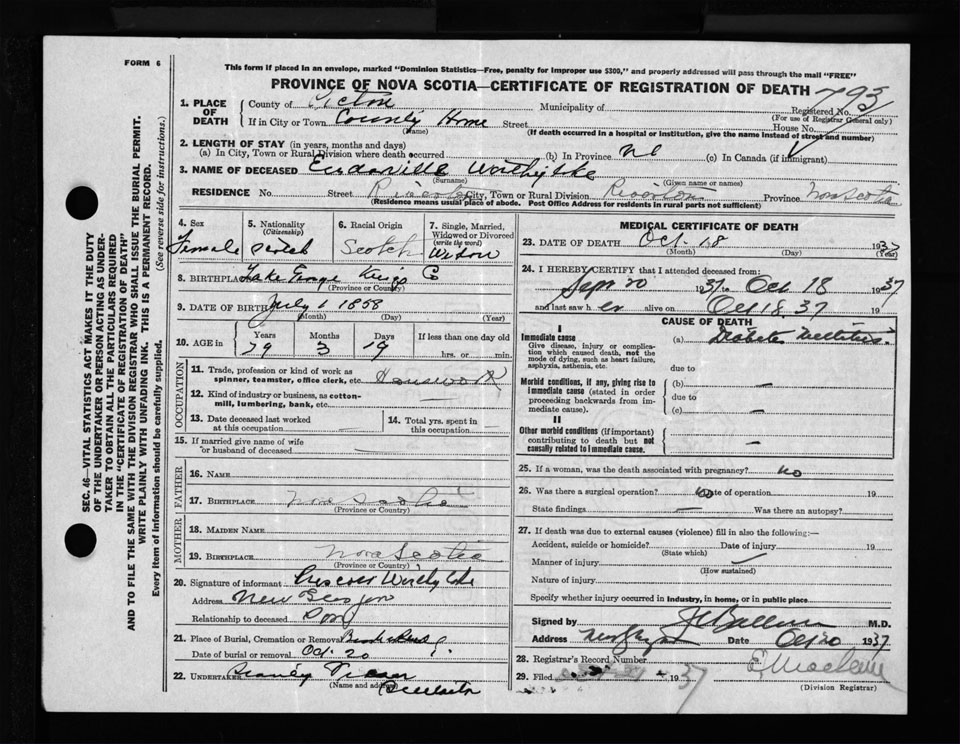 FORM 6
This form if placed in an envelope, marked "Dominion Statistics—Free, penalty for improper use $300," and properly addressed will pass through the mail "FREE"
PROVINCE OF NOVA SCOTIA—CERTIFICATE OF REGISTRATION OF DEATH 793
1. PLACE OF DEATH
County of Pictou Municipality of Registered No.
(For use of Registrar General only)
If in City or Town County Home Street House No.
(Name) (If death occurred in a hospital or institution, give the name instead of street and number)
2. LENGTH OF STAY (in years, months and days)
(a) In City, Town or Rural Division where death occurred (b) In Province (c) In Canada (if immigrant)
3. NAME OF DECEASED Worthylake
(Surname) (Given name or names)
RESIDENCE No. Street Riverton City, Town or Rural Division Riverton Province Nova Scotia
(Residence means usual place of abode. Post Office Address for residents in rural parts not sufficient)
4. Sex
Female
5. Nationality
(Citizenship)
6. Racial Origin
Scotch
7. Single, Married, Widowed or Divorced
(write the word)
Widow
8. BIRTHPLACE Lake George Kings Co
(Province or Country)
9. DATE OF BIRTH July 1 1858
(Month) (Day) (Year)
10. AGE in Years Months Days If less than one day
79 3 19 hrs. or min.
OCCUPATION
11. Trade, profession or kind of work as spinner, teamster, office clerk, etc. Housework
12. Kind of industry or business, as cotton-mill, lumbering, bank, etc. —
13. Date deceased last worked at this occupation —
14. Total yrs. spent in this occupation —
15. If married give name of wife or husband of deceased —
FATHER
16. NAME
17. BIRTHPLACE Nova Scotia
(Province or Country)
MOTHER
18. MAIDEN NAME
19. BIRTHPLACE Nova Scotia
(Province or Country)
20. Signature of informant Worthylake
Address New Glasgow
Relationship to deceased Son
21. Place of Burial, Cremation or Removal
Date of burial or removal Oct. 20
22. UNDERTAKER
(Name and address)
MEDICAL CERTIFICATE OF DEATH
23. DATE OF DEATH Oct 18 1937
(Month) (Day) (Year)
24. I HEREBY CERTIFY that I attended deceased from:
Sept 20 1937 to Oct 18 1937
and last saw h er alive on Oct 18 37 19
CAUSE OF DEATH
I
Immediate cause
Give disease, injury or complication which caused death, not the mode of dying, such as heart failure, asphyxia, asthenia, etc.
(a) Diabetes Mellitus
due to
Morbid conditions, if any, giving rise to immediate cause (stated in order proceeding backwards from immediate cause).
(b) —
due to
(c) —
II
Other morbid conditions (if important) contributing to death but not causally related to immediate cause. —
25. If a woman, was the death associated with pregnancy? no
26. Was there a surgical operation? no Date of operation 19
State findings — Was there an autopsy?
27. If death was due to external causes (violence) fill in also the following:—
Accident, suicide or homicide? Date of injury 19
(State which)
Manner of injury
(How sustained)
Nature of injury
Specify whether injury occurred in industry, in home, or in public place
Signed by M.D.
Address New Glasgow Date Oct 20 1937
28. Registrar's Record Number
29. Filed 1937
(Division Registrar)
SEC. 46—VITAL STATISTICS ACT MAKES IT THE DUTY
OF THE UNDERTAKER OR PERSON ACTING AS UNDER-
TAKER TO OBTAIN ALL THE PARTICULARS REQUIRED
IN THE "CERTIFICATE OF REGISTRATION OF DEATH"
AND TO FILE THE SAME WITH THE DIVISION REGISTRAR WHO SHALL ISSUE THE BURIAL PERMIT.
WRITE PLAINLY WITH UNFADING INK. THIS IS A PERMANENT RECORD.
Every item of information should be carefully supplied. (See reverse side for instructions.)